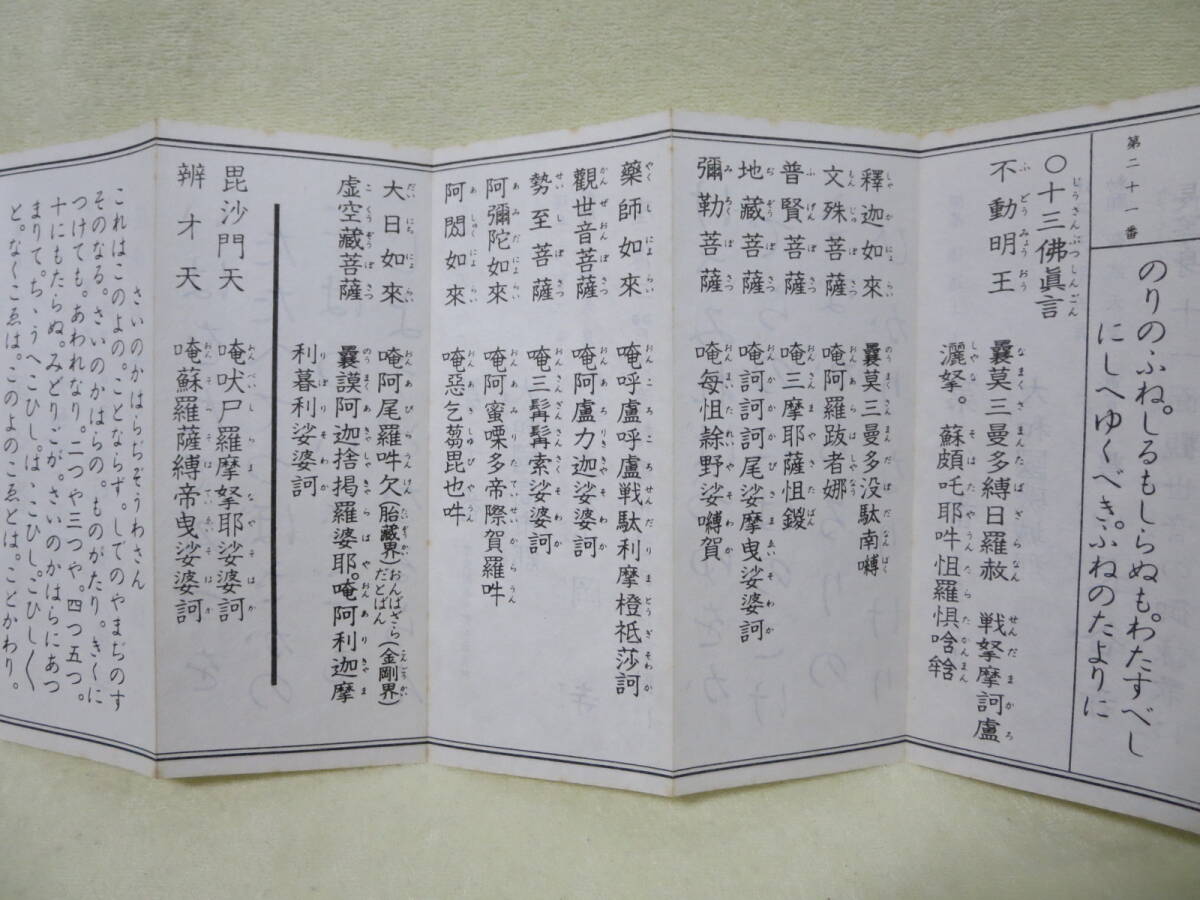 第二十一番
のりのふね。しるもしらぬも。わたすべし
にしへゆくべき。ふねのたよりに
〇十三佛眞言
不動明王 曩莫三曼多縛日羅赦 戦拏摩訶盧
灑拏。蘇頗吒耶吽怛羅惧唅𤚥
釋迦如來 曩莫三曼多没駄南嚩
文殊菩薩 唵阿羅跛者娜
普賢菩薩 唵三摩耶薩怛鍐
地藏菩薩 唵訶訶訶尾娑摩曳娑婆訶
彌勒菩薩 唵每怛野娑嚩賀
藥師如來 唵呼盧呼盧戦駄利摩橙祗莎訶
觀世音菩薩 唵阿盧力迦娑婆訶
勢至菩薩 唵三髯髯索娑婆訶
阿彌陀如來 唵阿蜜㗚多帝際賀羅吽
阿閦如來 唵惡乞蒭毘也吽
大日如來 唵阿尾羅吽欠(胎藏界)おんばざらだとばん(金剛界)
虚空藏菩薩 曩謨阿迦捨掲羅婆耶。唵阿利迦摩
利暮利娑婆訶
毘沙門天 唵吠尸羅摩拏耶娑婆訶
辨才天 唵蘇羅薩縛帝曳娑婆訶
さいのかはらぢぞうわさん
これはこのよの。ことならず。しでのやまぢのす
そのなる。さいのかはらの。ものがたり。きくに
つけても。あわれなり。二つや三つや。四つ五つ。
十にもたらぬ。みどりごが。さいのかはらにあつ
まりて。ちゝうへこひし。はゝこひし。こひし〱
と。なくこゑは。このよのこゑとは。ことかわり。